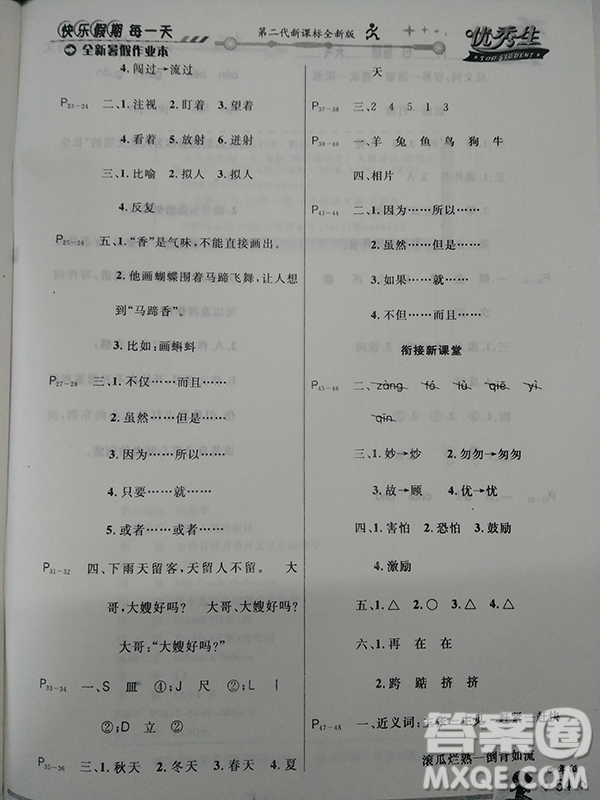 快乐假期 每一天
全新暑假作业本
第二代新课标全新版
优秀生
TOP STUDENT
4. 闯过→流过
P23-24 二、1. 注视 2. 盯着 3. 望着
4. 看着 5. 放射 6. 迸射
三、1. 比喻 2. 拟人 3. 拟人
4. 反复
P25-26 五、1. “香”是气味,不能直接画出。
2. 他画蝴蝶围着马蹄飞舞,让人想
到“马蹄香”。
3. 比如:画蝌蚪
P27-28 三、1. 不仅……而且……
2. 虽然……但是……
3. 因为……所以……
4. 只要……就……
5. 或者……或者……
P31-32 四、下雨天留客,天留人不留。 大
哥,大嫂好吗? 大哥大嫂好吗?
大哥:“大嫂好吗?”
P33-34 一、S 皿 ④;J 尺 ②;L 丨
②;D 立 ②
P35-36 三、1. 秋天 2. 冬天 3. 春天 4. 夏
天
P37-38 三、2 4 5 1 3
P39-40 一、羊 兔 鱼 鸟 狗 牛
四、相片
P43-44 二、1. 因为……所以……
2. 虽然……但是……
3. 如果……就……
4. 不但……而且……
衔接新课堂
P45-46 二、zàng fó lù qiē yì
qīn
三、1. 妙→炒 2. 勿勿→匆匆
3. 故→顾 4. 优→忧
四、1. 害怕 2. 恐怕 3. 鼓励
4. 激励
五、1. △ 2. ○ 3. △ 4. △ 5. △
六、1. 再 在 在
2. 跨 踮 挤 挤
P47-48 一、近义词:
滚瓜烂熟—倒背如流
答案圈
MXQE.COM